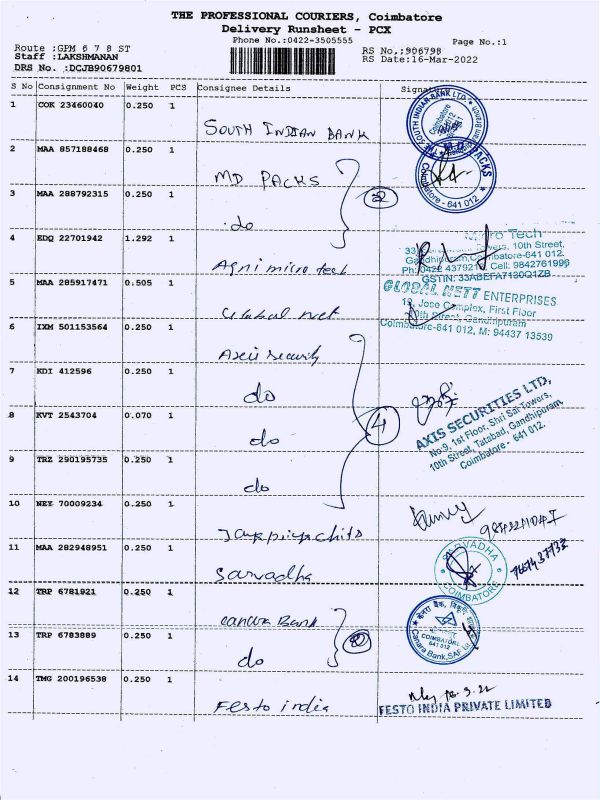 THE PROFESSIONAL COURIERS, Coimbatore
Delivery Runsheet - PCX
Phone No.:0422-3505555
Page No.:1
Route :GPM 6 7 8 ST
Staff :LAKSHMANAN
DRS No. :DCJB90679801
RS No.:906798
RS Date:16-Mar-2022
S No Consignment No Weight PCS Consignee Details
1 COK 23460040 0.250 1
SOUTH INDIAN BANK
2 MAA 857188468 0.250 1
MD PACKS
3 MAA 288792315 0.250 1
do
4 EDQ 22701942 1.292 1
Agni micro tech
5 MAA 285917471 0.505 1
Global net
6 IXM 501153564 0.250 1
Axis security
7 KDI 412596 0.250 1
do
8 KVT 2543704 0.070 1
do
9 TRZ 290195735 0.250 1
do
4
10 NEY 70009234 0.250 1
11 MAA 282948951 0.250 1
Sarvadha
12 TRP 6781921 0.250 1
Canara Bank
13 TRP 6783889 0.250 1
do
14 TMG 200196538 0.250 1
Festo india
SOUTH INDIAN BANK LTD.
Coimbatore
PACKS
Coimbatore - 641 012
Micro Tech
10th Street,
Coimbatore-641 012.
Cell: 9842761996
GSTIN: 33ABEFA7130Q1ZB
GLOBAL NETT ENTERPRISES
Jose Complex, First Floor
Street, Gandhipuram
Coimbatore-641 012, M: 94437 13539
AXIS SECURITIES LTD,
No:9, 1st Floor, Shri Sai Towers,
10th Street, Tatabad, Gandhipuram,
Coimbatore - 641 012.
SARVADHA
COIMBATORE
केनरा बैंक
COIMBATORE
641 012
Canara Bank,
FESTO INDIA PRIVATE LIMITED